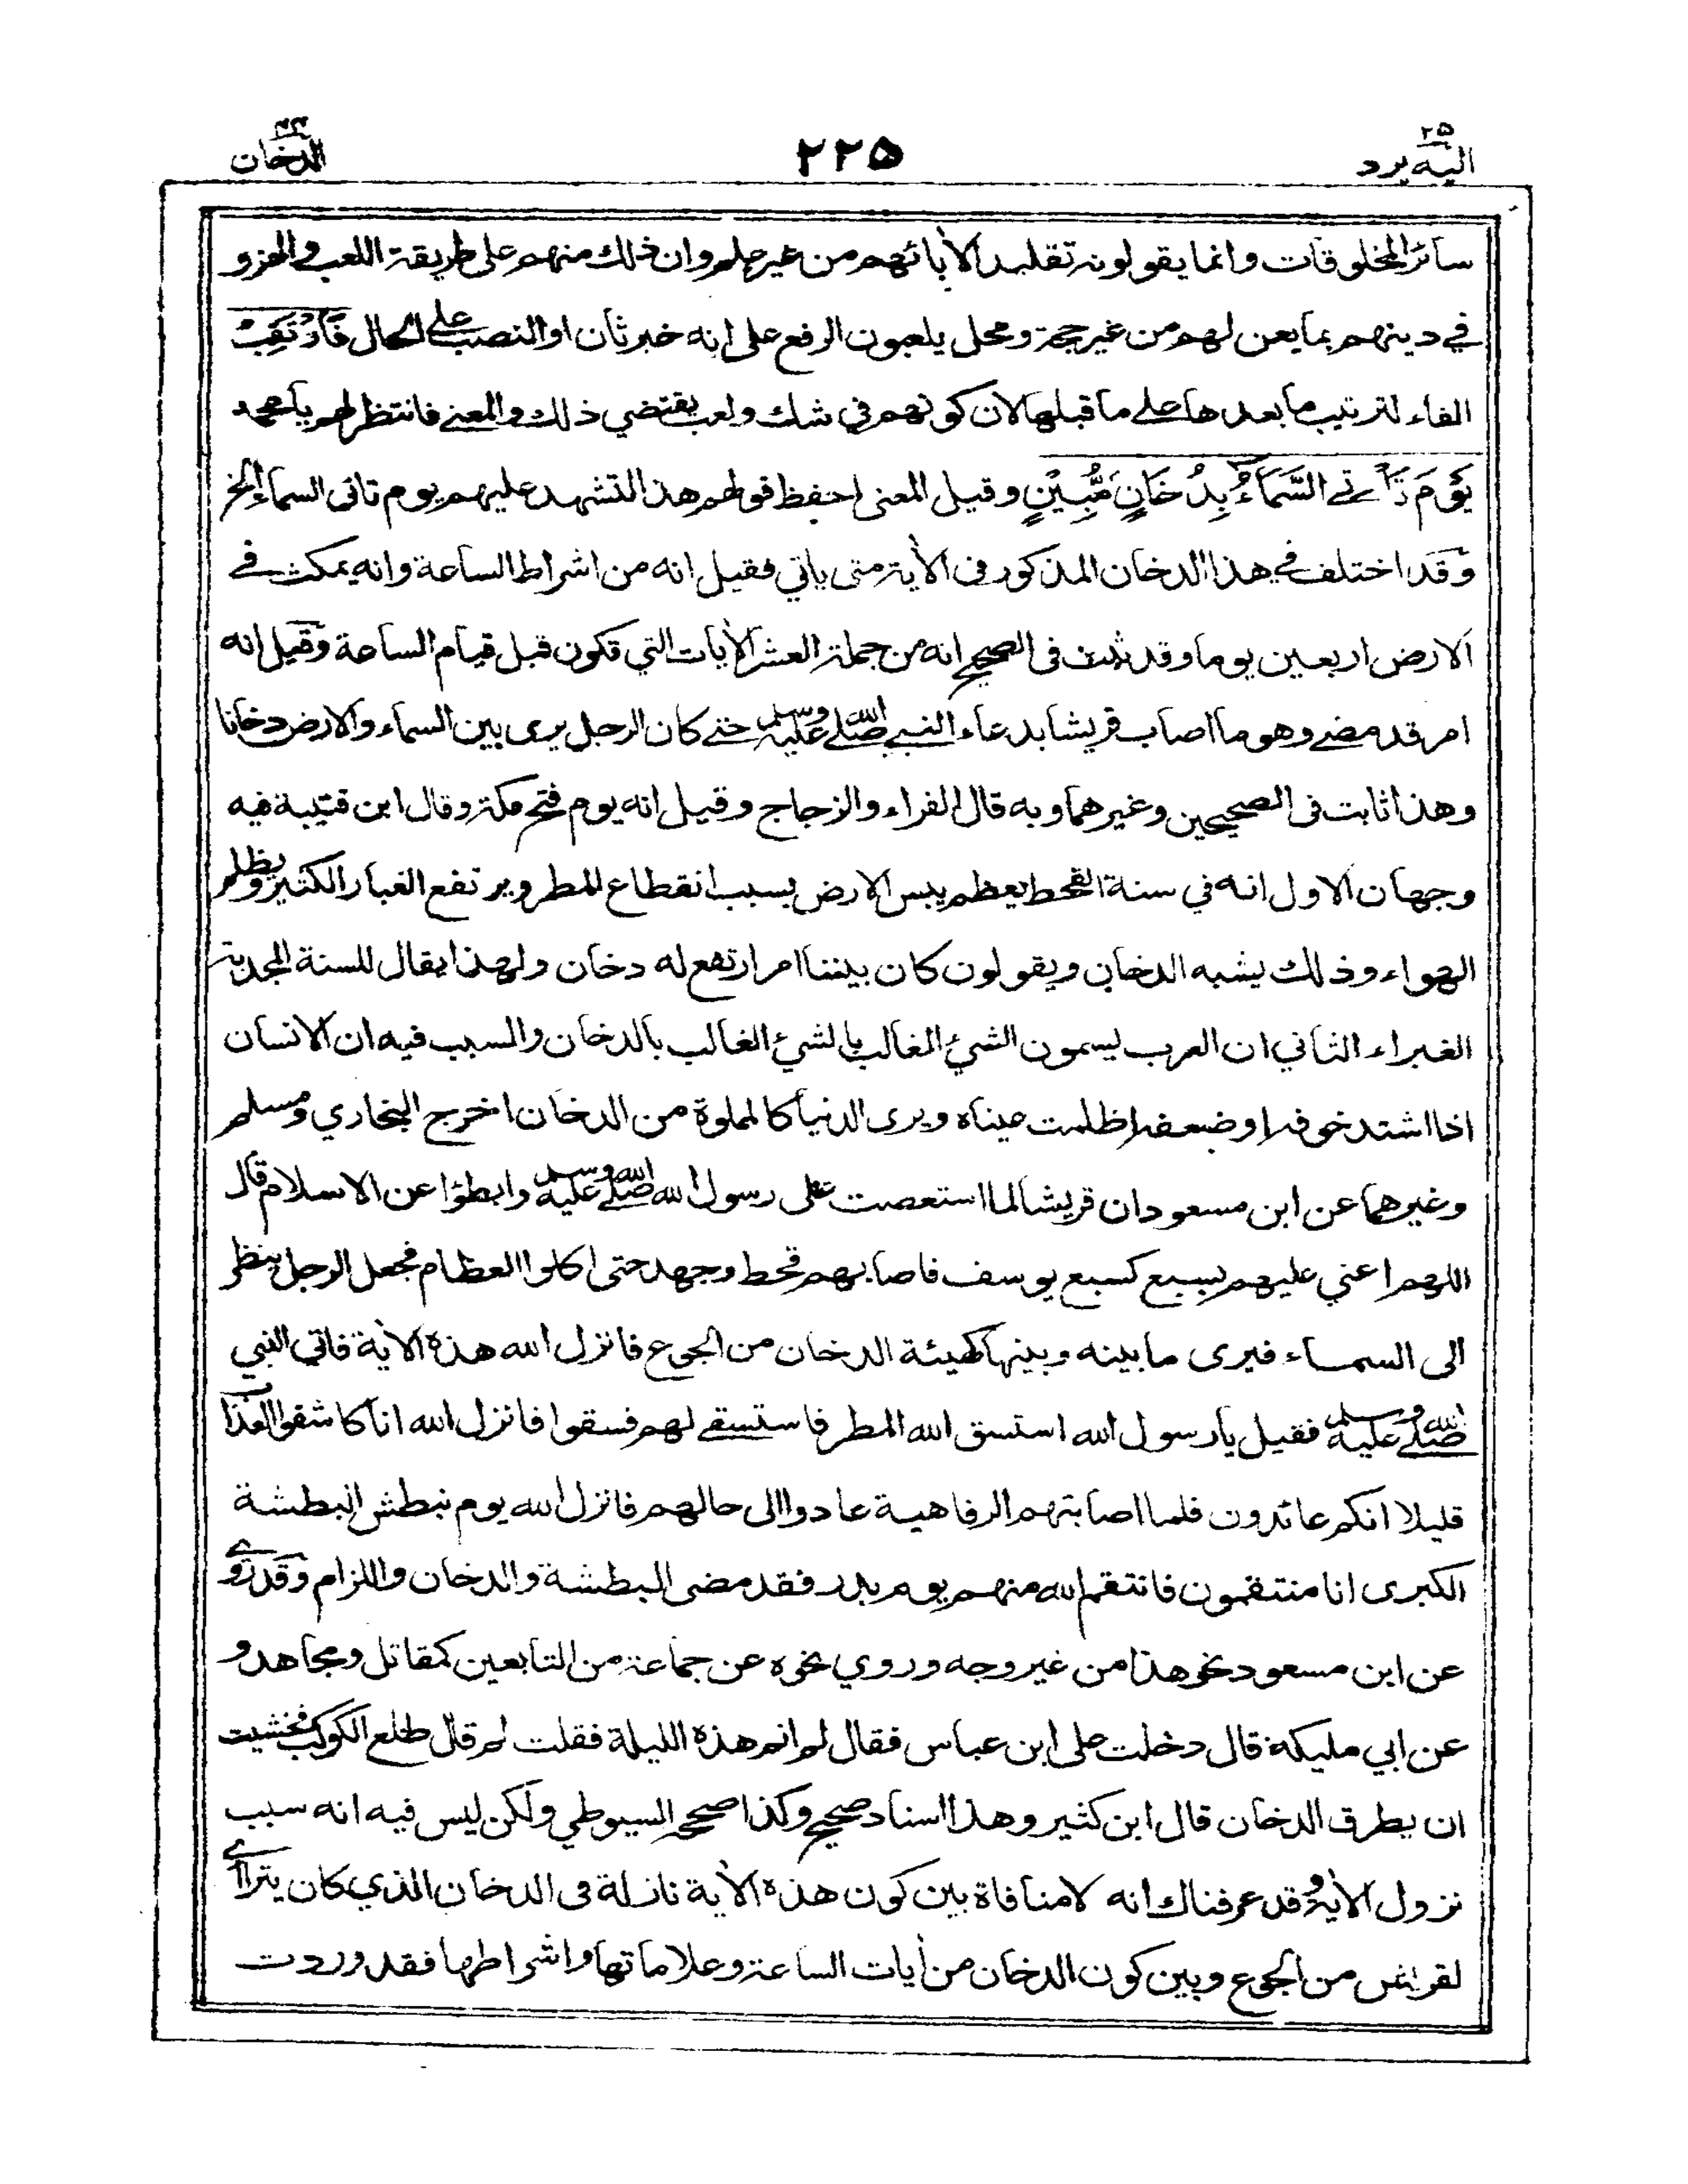 ٢٥
اليه يرد
٢٢٥
٤٤
الدخان
سائر المخلوقات وانما يقولونه تقليدا لأبائهم من غير علم وان ذلك منهم على طريقة اللعب والهزو
في دينهم بما يعن لهم من غير حجة ومحل يلعبون الرفع على انه خبر ثان او النصب على الحال فَارْتَقِبْ
الفاء لترتيب ما بعدها على ما قبلها لان كونهم في شك ولعب يقتضي ذلك والمعنى فانتظر لهم يا محمد
يَوْمَ تَأْتِي السَّمَآءُ بِدُخَانٍ مُّبِيْنٍ وقيل المعنى احفظ قولهم هذا لتشهد عليهم يوم تاتى السماء الخ
وقد اختلف في هذا الدخان المذكور فى الأية متى ياتي فقيل انه من اشراط الساعة وانه يمكث في
الارض اربعين يوما وقد ثبت فى الصحيح انه من جملة العشر الأيات التي تكون قبل قيام الساعة وقيل انه
امر قد مضى وهو ما اصاب قريشا بدعاء النبي صلى الله عليه وسلم حتى كان الرجل يرى بين السماء والارض دخانا
وهذا ثابت فى الصحيحين وغيرهما وبه قال الفراء والزجاج وقيل انه يوم فتح مكة وقال ابن قتيبة فيه
وجهان الاول انه في سنة القحط يعظم يبس الارض بسبب انقطاع المطر ويرتفع الغبار الكثير ويظلم
الهواء وذلك يشبه الدخان ويقولون كان بيننا امر ارتفع له دخان ولهذا يقال للسنة المجدبة
الغبراء الثاني ان العرب يسمون الشئ الغالب بالشئ الغالب بالدخان والسبب فيه ان الانسان
اذا اشتد خوفه او ضعفه اظلمت عيناه ويرى الدنيا كالمملوة من الدخان اخرج البخاري ومسلم
وغيرهما عن ابن مسعود ان قريشا لما استعصت على رسول الله صلى الله عليه وسلم وابطؤا عن الاسلام قال
اللهم اعني عليهم بسبع كسبع يوسف فاصابهم قحط وجهد حتى اكلوا العظام فجعل الرجل ينظر
الى السماء فيرى ما بينه وبينها كهيئة الدخان من الجوع فانزل الله هذه الأية فاتي النبي
صلى الله عليه وسلم فقيل يا رسول الله استسق الله المطر فاستسقى لهم فسقوا فانزل الله انا كاشفوا العذاب
قليلا انكم عائدون فلما اصابتهم الرفاهية عادوا الى حالهم فانزل الله يوم نبطش البطشة
الكبرى انا منتقمون فانتقم الله منهم يوم بدر فقد مضى البطشة والدخان واللزام وقد روي
عن ابن مسعود نحو هذا من غير وجه وروي نحوه عن جماعة من التابعين كمقاتل ومجاهد و
عن ابي مليكة قال دخلت على ابن عباس فقال لم انم هذه الليلة فقلت لم قال طلع الكوكب فخشيت
ان يطرق الدخان قال ابن كثير وهذا اسناد صحيح وكذا صححه السيوطي ولكن ليس فيه انه سبب
نزول الأية وقد عرفناك انه لا منافاة بين كون هذه الأية نازلة فى الدخان الذي كان يترااى
لقريش من الجوع وبين كون الدخان من أيات الساعة وعلاماتها واشراطها فقد وردت